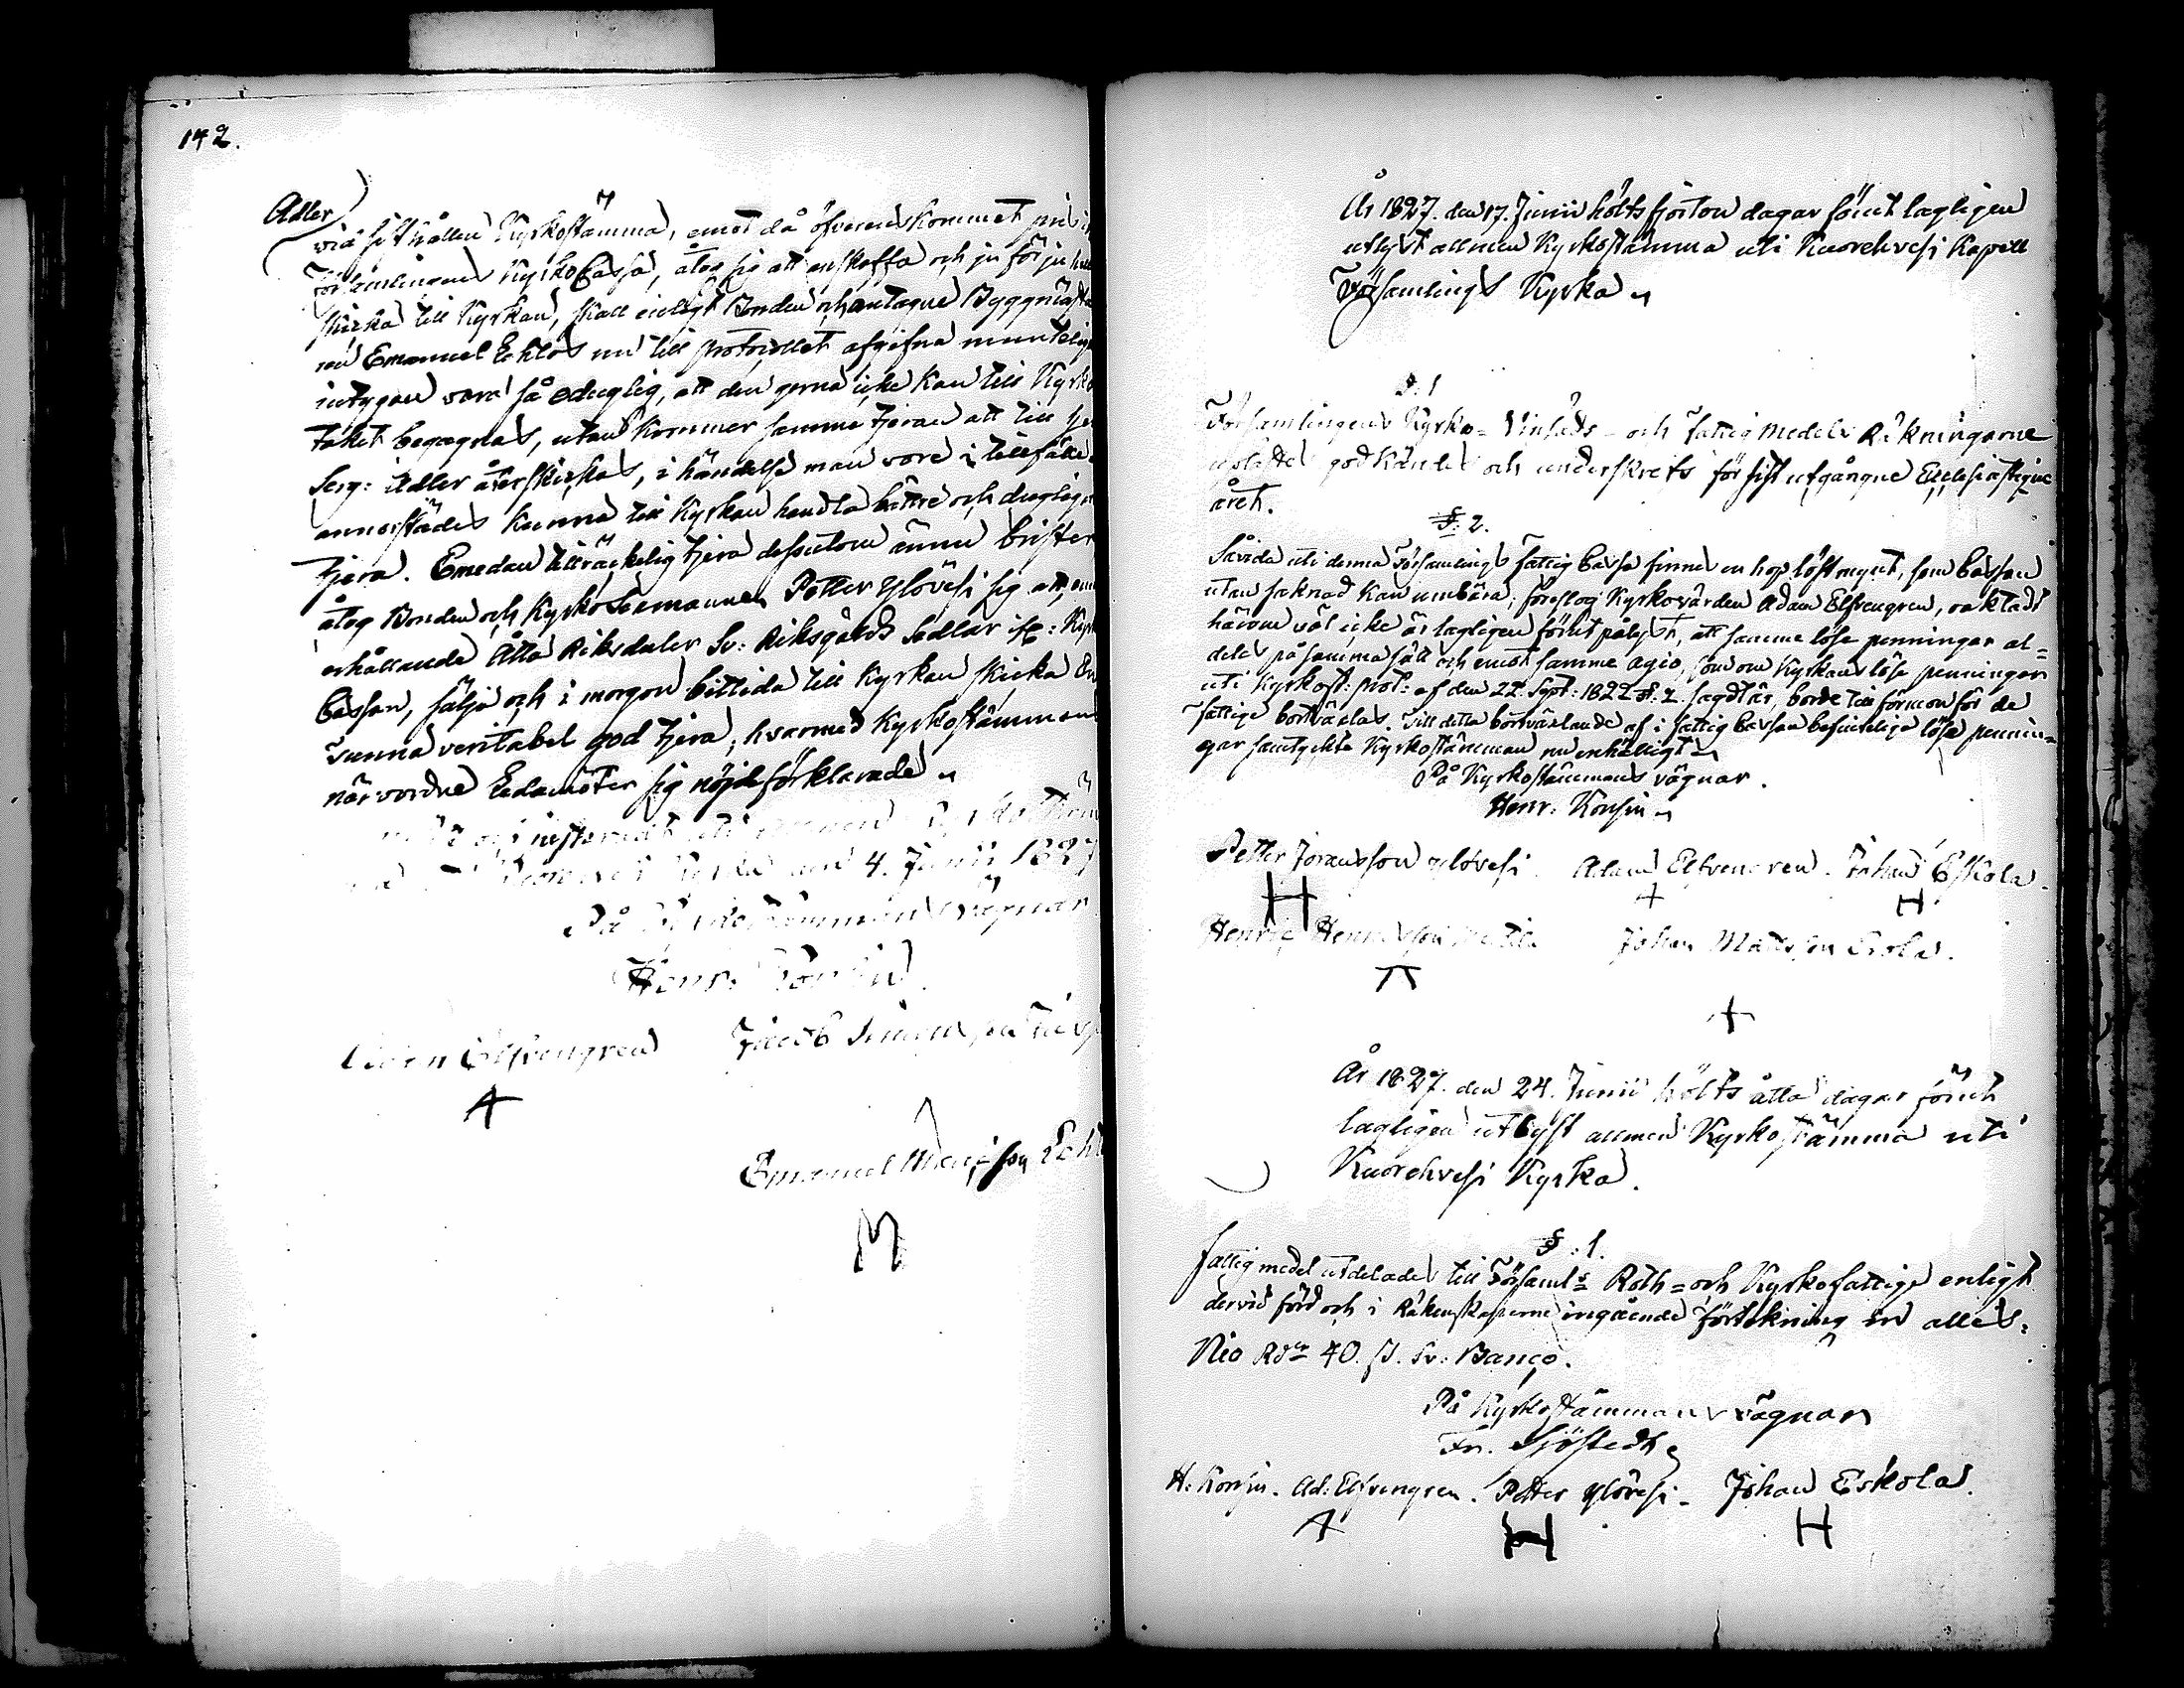 142.
Adler
vid sist hållen Kyrkostämma, emot då öfverenskommet pris
Församlingens KyrkoCassa, åtog sig att anskaffa och ju förr ju
skicka till Kyrkan, skall enligt Bonden och antagne Byggmästa
ren Emanuel Echlös nu till protocollet afgifna munteliga
intygan vara så oduglig, att den gerna icke kan till Kyrko
taket begagnas, utan kommer samma tjeran att till
Serg: Adler återskickas, i händelse man vore i tillfälle
annorstädes kunna till Kyrkan handla bättre och dugligare
tjera. Emedan tillräckelig tjera dessutom ännu brister
åtog Bonden och Kyrko Sexmannen Petter Ylövesi sig att, emot
erhållande Åtta Riksdaler Sv: Riksgälds Sedlar
Cassan, sälja och i morgon bittida till Kyrkan skicka En
Tunna veritabel god tjera, hvarmed Kyrkostämmans
närvordne Ledamöter sig nöjd förklarade.
4. Junii 1827
På Kyrkostämmans vägnar
Henr:
Elfvengren Jacob
A
Emanuel
M
År 1827. den 17. Junii hölts fjorton dagar förut lagligen
utlyst allmän Kyrkostämma uti Kuorehvesi Kapell
Församlings Kyrka
§. 1
Församlingens Kyrko- Vinsäds- och Fattig Medels Räkningarne
uplästes godkändes och underskrefs för sist utgångne Ecclesiastique
året.
§. 2.
Såvida uti denna Församlings Fattig Cassa finnes en hop löst mynt, som Cassan
utan saknad kan umbära; föreslog Kyrkovärden Adam Elfvengren, oaktadt
härom väl icke är lagligen förut pålyst, att samme löse penningar al-
deles på samma sätt och emot samme agio, som om Kyrkans löse penningar
uti Kyrkost: prot: af den 22. Sept: 1822 §. 2. sagdt är, borde till förmon för de
fattige bortväxlas. Till detta bortväxlande af i fattig Cassan befintelige löse pennin-
gar samtyckte Kyrkostämman nu enhälligt
På Kyrkostämmans vägnar.
Henr: Konsin
Petter Joransson Ylövesi. Adam Elfvengren. Johan Eskola.
H + H
Henric Johan Matsson Erola.
År 1827. den 24. Junii hölts åtta dagar förut
lagligen utlyst allmän Kyrkostämma uti
Kuorehvesi Kyrka.
§: 1.
Fattigmedel utdelades till Församls Roth- och Kyrkofattige enligt
dervid förd och i Räkenskaperne ingående förtekning in alles.
Nio Rdr 40. s. Sv: Banco.
På Kyrkostämmans vägnar
Fr. Sjöstedt
H. Konsin. Ad: Elfvengren. Petter Ylövesi. Johan Eskola.
A H H